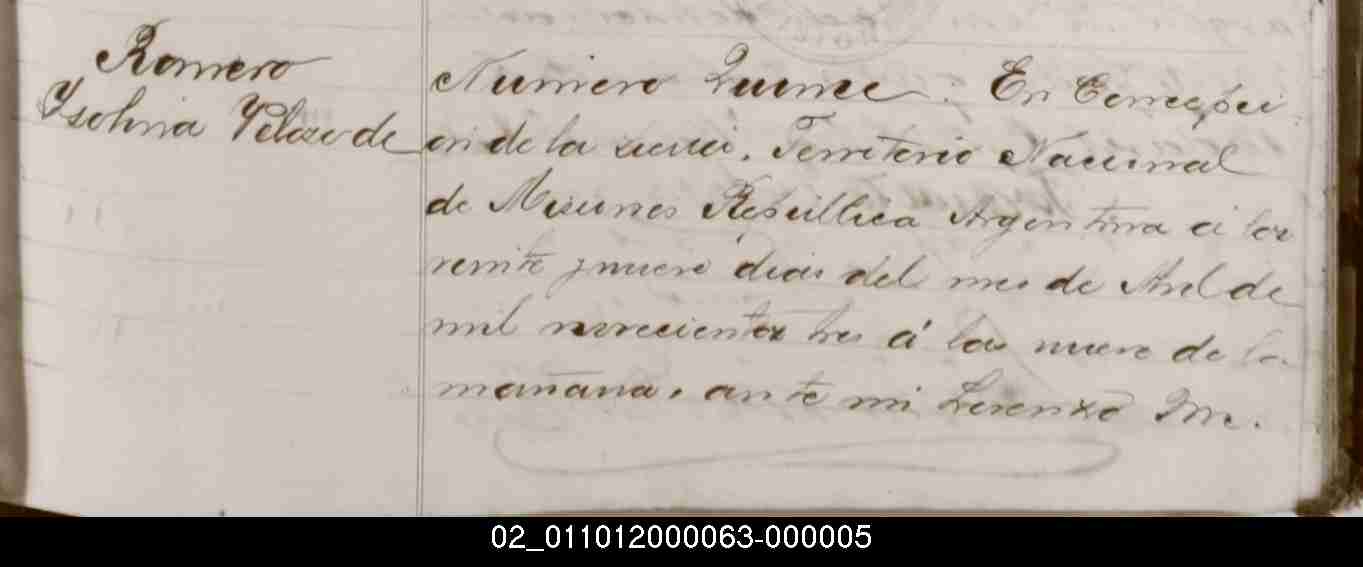 Romero
Ysolina Velose de
Número Quince. En Concepci
on de la sierra. Territorio Nacional
de Misiones República Argentina á los
veinte y nueve dias del mes de Abril de
mil novecientos tres á las nueve de la
mañana, ante mi Lorenzo
02_011012000063-000005